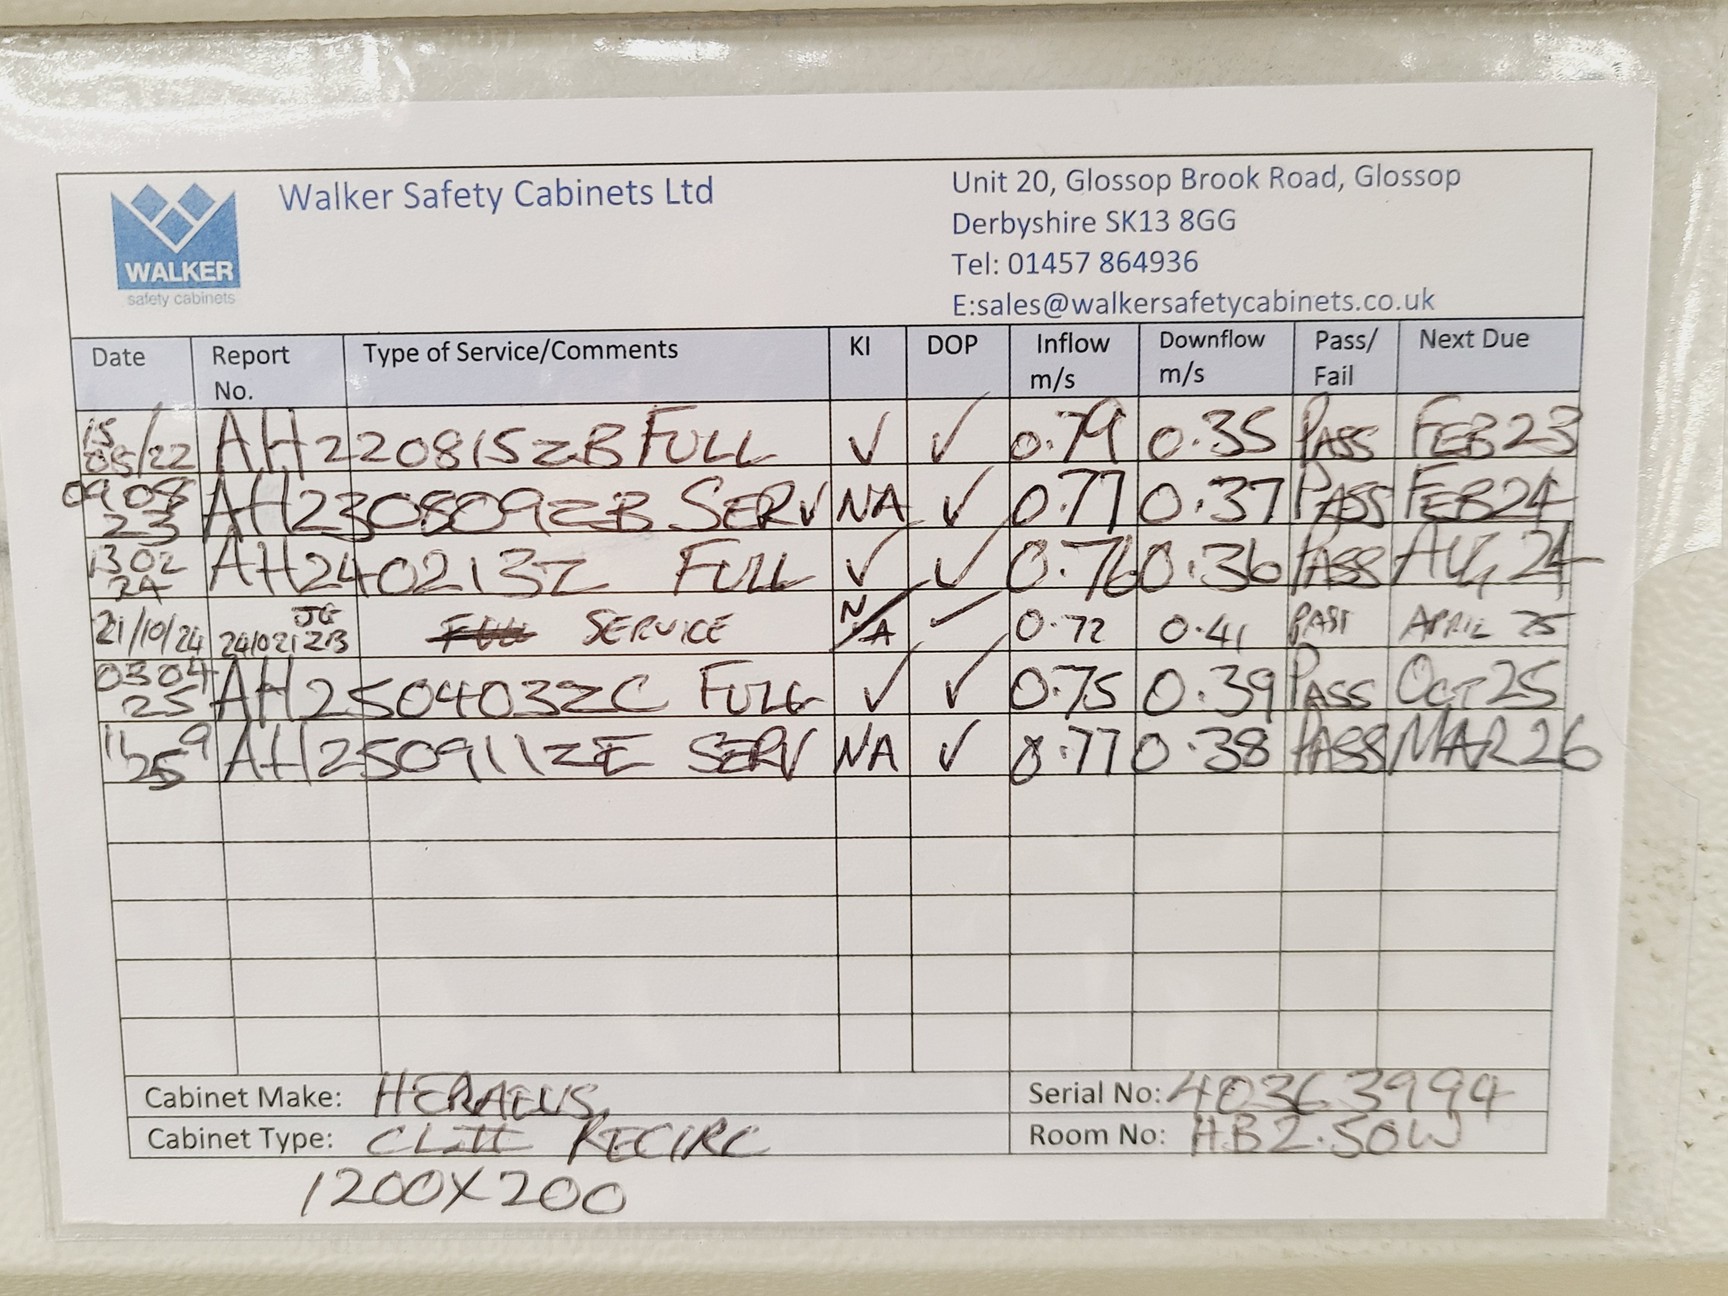 WALKER
safety cabinets
Walker Safety Cabinets Ltd
Unit 20, Glossop Brook Road, Glossop
Derbyshire SK13 8GG
Tel: 01457 864936
E:sales@walkersafetycabinets.co.uk
Date Report No. Type of Service/Comments KI DOP Inflow m/s Downflow m/s Pass/ Fail Next Due
15 08/22 AH220815ZB FULL ✓ ✓ 0.79 0.35 PASS FEB 23
09 08 23 AH230809ZB SERV NA ✓ 0.77 0.37 PASS FEB 24
13 02 24 AH240213Z FULL ✓ ✓ 0.76 0.36 PASS AUG 24
21/10/24 JG SERVICE N/A 0.72 0.41 PASS APRIL 25
03 04 25 AH250403ZC FULL ✓ ✓ 0.75 0.39 PASS OCT 25
11 9 25 AH250911ZE SERV NA ✓ 0.77 0.38 PASS MAR 26
Cabinet Make: HERAEUS Serial No: 40363994
Cabinet Type: CLII RECIRC Room No: HB2.50W
1200X200